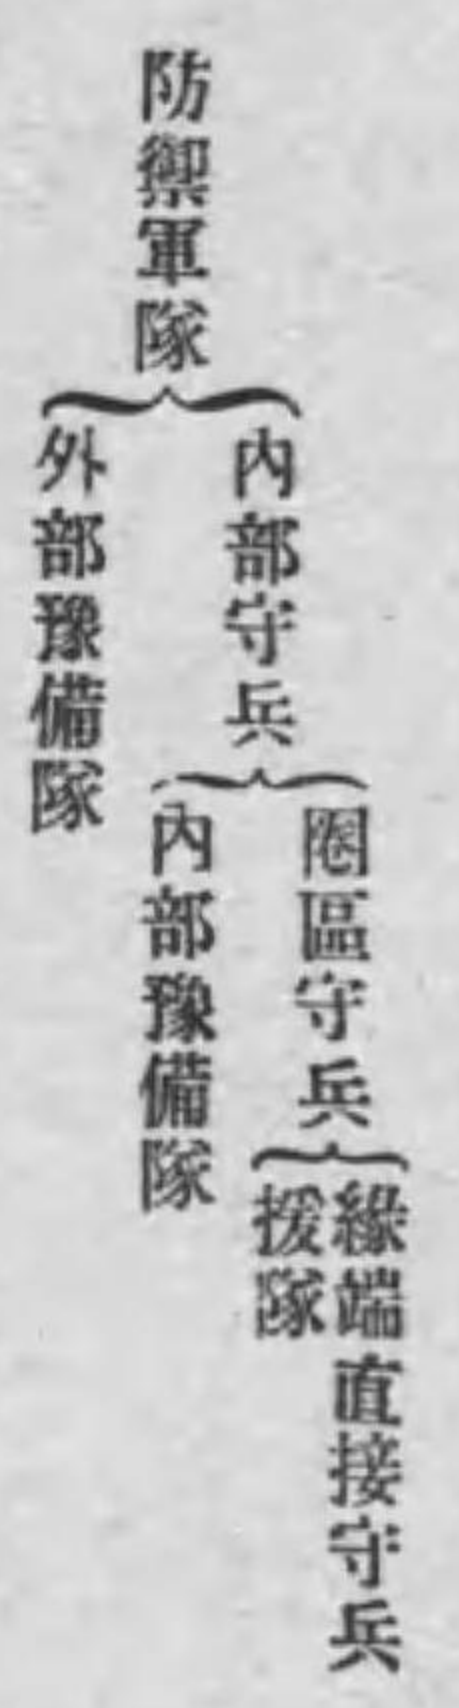 防禦軍隊
內部守兵
圈區守兵
緣端直接守兵
援隊
內部豫備隊
外部豫備隊